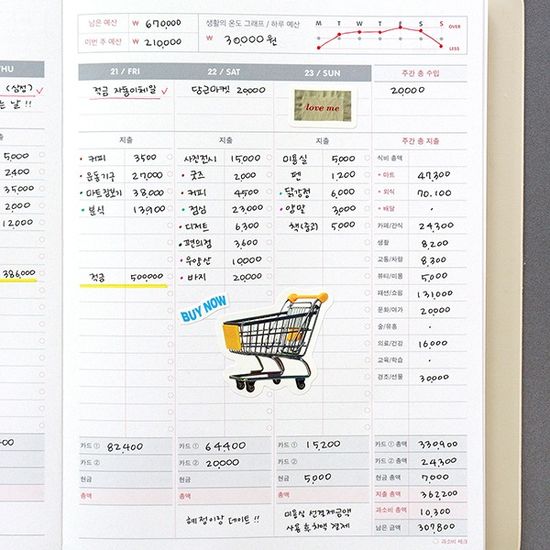 남은 예산 ₩ 670,000
이번 주 예산 ₩ 210,000
생활의 온도 그래프 / 하루 예산
₩ 30,000 원
M T W T F S S
OVER
LESS
THU
(상정)
는 날 !!
지출
5,000
2,400
35,000
2,000
12,000
386,000
21 / FRI
적금 자동이체일
지출
커피 3500
운동기구 27,000
마트장보기 38,000
분식 13,900
적금 500,000
카드 ① 82,400
카드 ②
현금
총액
22 / SAT
당근마켓 20,000
지출
사진전시 15,000
굿즈 2,000
커피 4500
점심 23,000
디저트 6,300
편의점 3,600
우양산 10,000
바지 20,000
BUY NOW
카드 ① 64,400
카드 ② 20,000
현금
총액
혜정이랑 데이트 !!
23 / SUN
love me
지출
미용실 5,000
펜 1,200
닭강정 6,000
양말 3,000
책(중고) 5,000
카드 ① 15,200
카드 ②
현금 5,000
총액
미용실 선결제금액
사용 후 차액 결제
주간 총 수입
20,000
주간 총 지출
식비 총액
마트 47,300
외식 70,100
배달
카페/간식 24,300
생활 8,200
교통/차량 8,300
뷰티/미용 5,000
패션/쇼핑 131,000
문화/여가 20,000
술/유흥
의료/건강 16,000
교육/학습
경조/선물 30,000
카드 ① 총액 330,900
카드 ② 총액 24,300
현금 총액 7,000
지출 총액 362,200
과소비 총액 10,300
남은 금액 307,800
과소비 체크